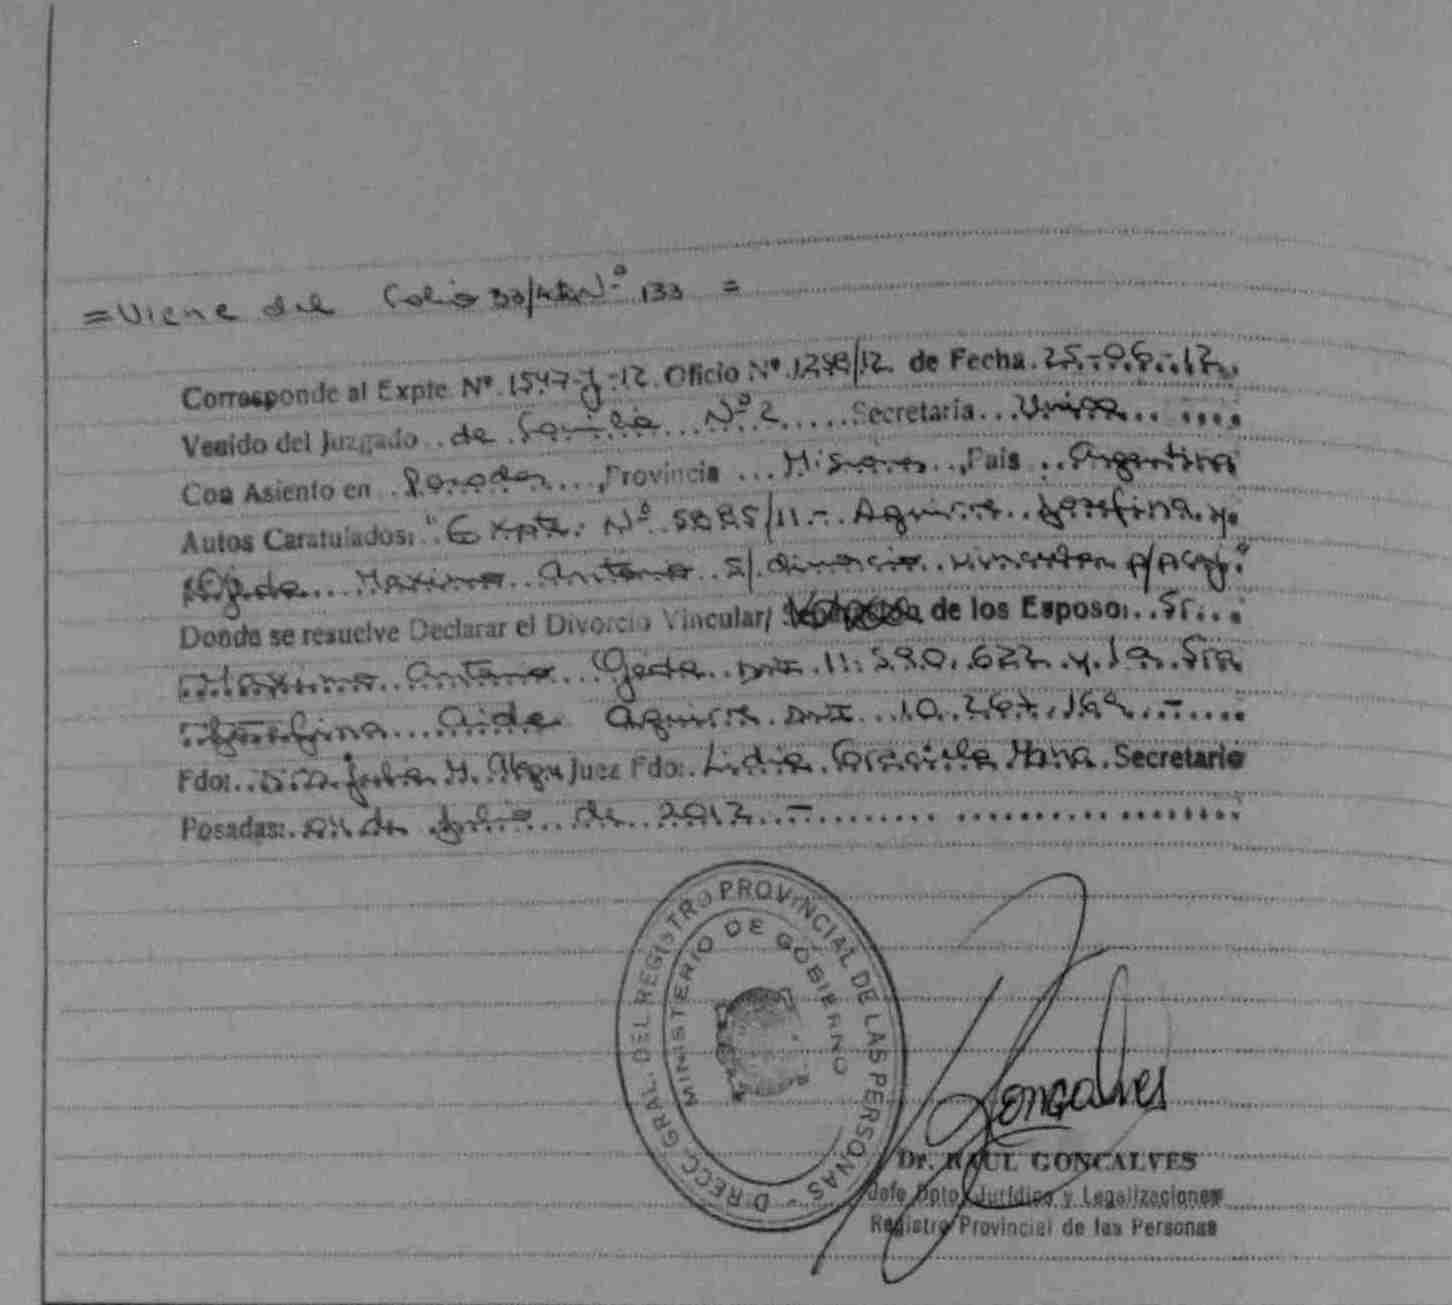 =Viene del Folio 33/ Nº 133 =
Corresponde al Expte Nº 1547-J-12 Oficio Nº 1298/12 de Fecha 25-06-12
Venido del Juzgado de Familia Nº 2 Secretaría Unica
Con Asiento en Posadas, Provincia Misiones, País Argentina
Autos Caratulados: "Expte. Nº 5885/11.- Aguirre Josefina y
Ojeda Maximo Antonio s/ divorcio vincular p/p conj."
Donde se resuelve Declarar el Divorcio Vincular/ de los Esposo: Sr.
Maximo Antonio Ojeda DNI 11.590.622 y la Sra
Josefina Aide Aguirre DNI 10.267.169.-
Fdo: Dra Julia M. Juez Fdo: Lidia Graciela Secretario
Posadas: de Julio de 2012.-
DIRECC. GRAL. DEL REGISTRO PROVINCIAL DE LAS PERSONAS -
MINISTERIO DE GOBIERNO
Goncalves
Dr. RAUL GONCALVES
Jefe Dpto. Jurídico y Legalizaciones
Registro Provincial de las Personas